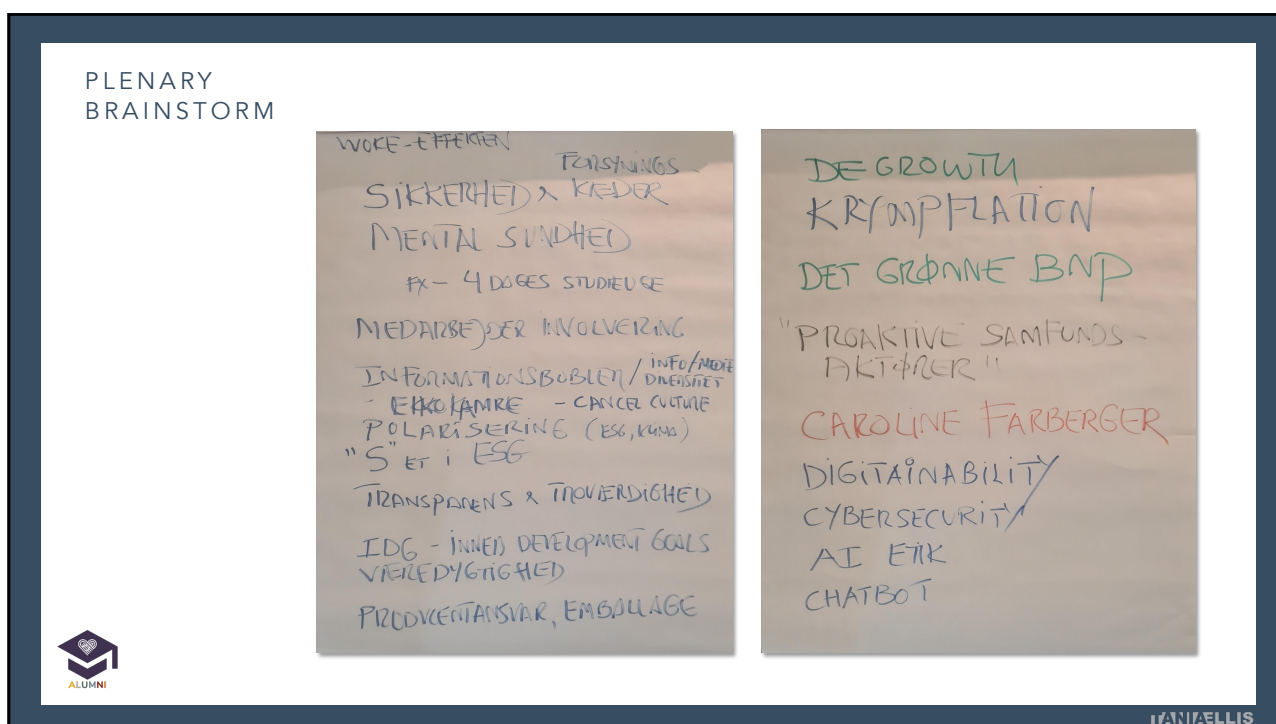 PLENARY
BRAINSTORM
WOKE-EFFEKTEN
FORSYNINGS
SIKKERHED & KÆDER
MENTAL SUNDHED
FX - 4 DAGES STUDIEUGE
MEDARBEJDER INVOLVERING
INFORMATIONSBOBLER / INFO/MEDIE
DIVERSITET
- EKKOKAMRE - CANCEL CULTURE
POLARISERING (ESG, KLIMA)
"S" ET i ESG
TRANSPARENS & TROVÆRDIGHED
IDG - INNER DEVELOPMENT GOALS
VÆREDYGTIGHED
PRODUCENTANSVAR, EMBALLAGE
DEGROWTH
KRYMPFLATION
DET GRØNNE BNP
"PROAKTIVE SAMFUNDS-
AKTØRER"
CAROLINE FARBERGER
DIGITAINABILITY
CYBERSECURITY
AI ETIK
CHATBOT
ALUMNI
TANIAELLIS